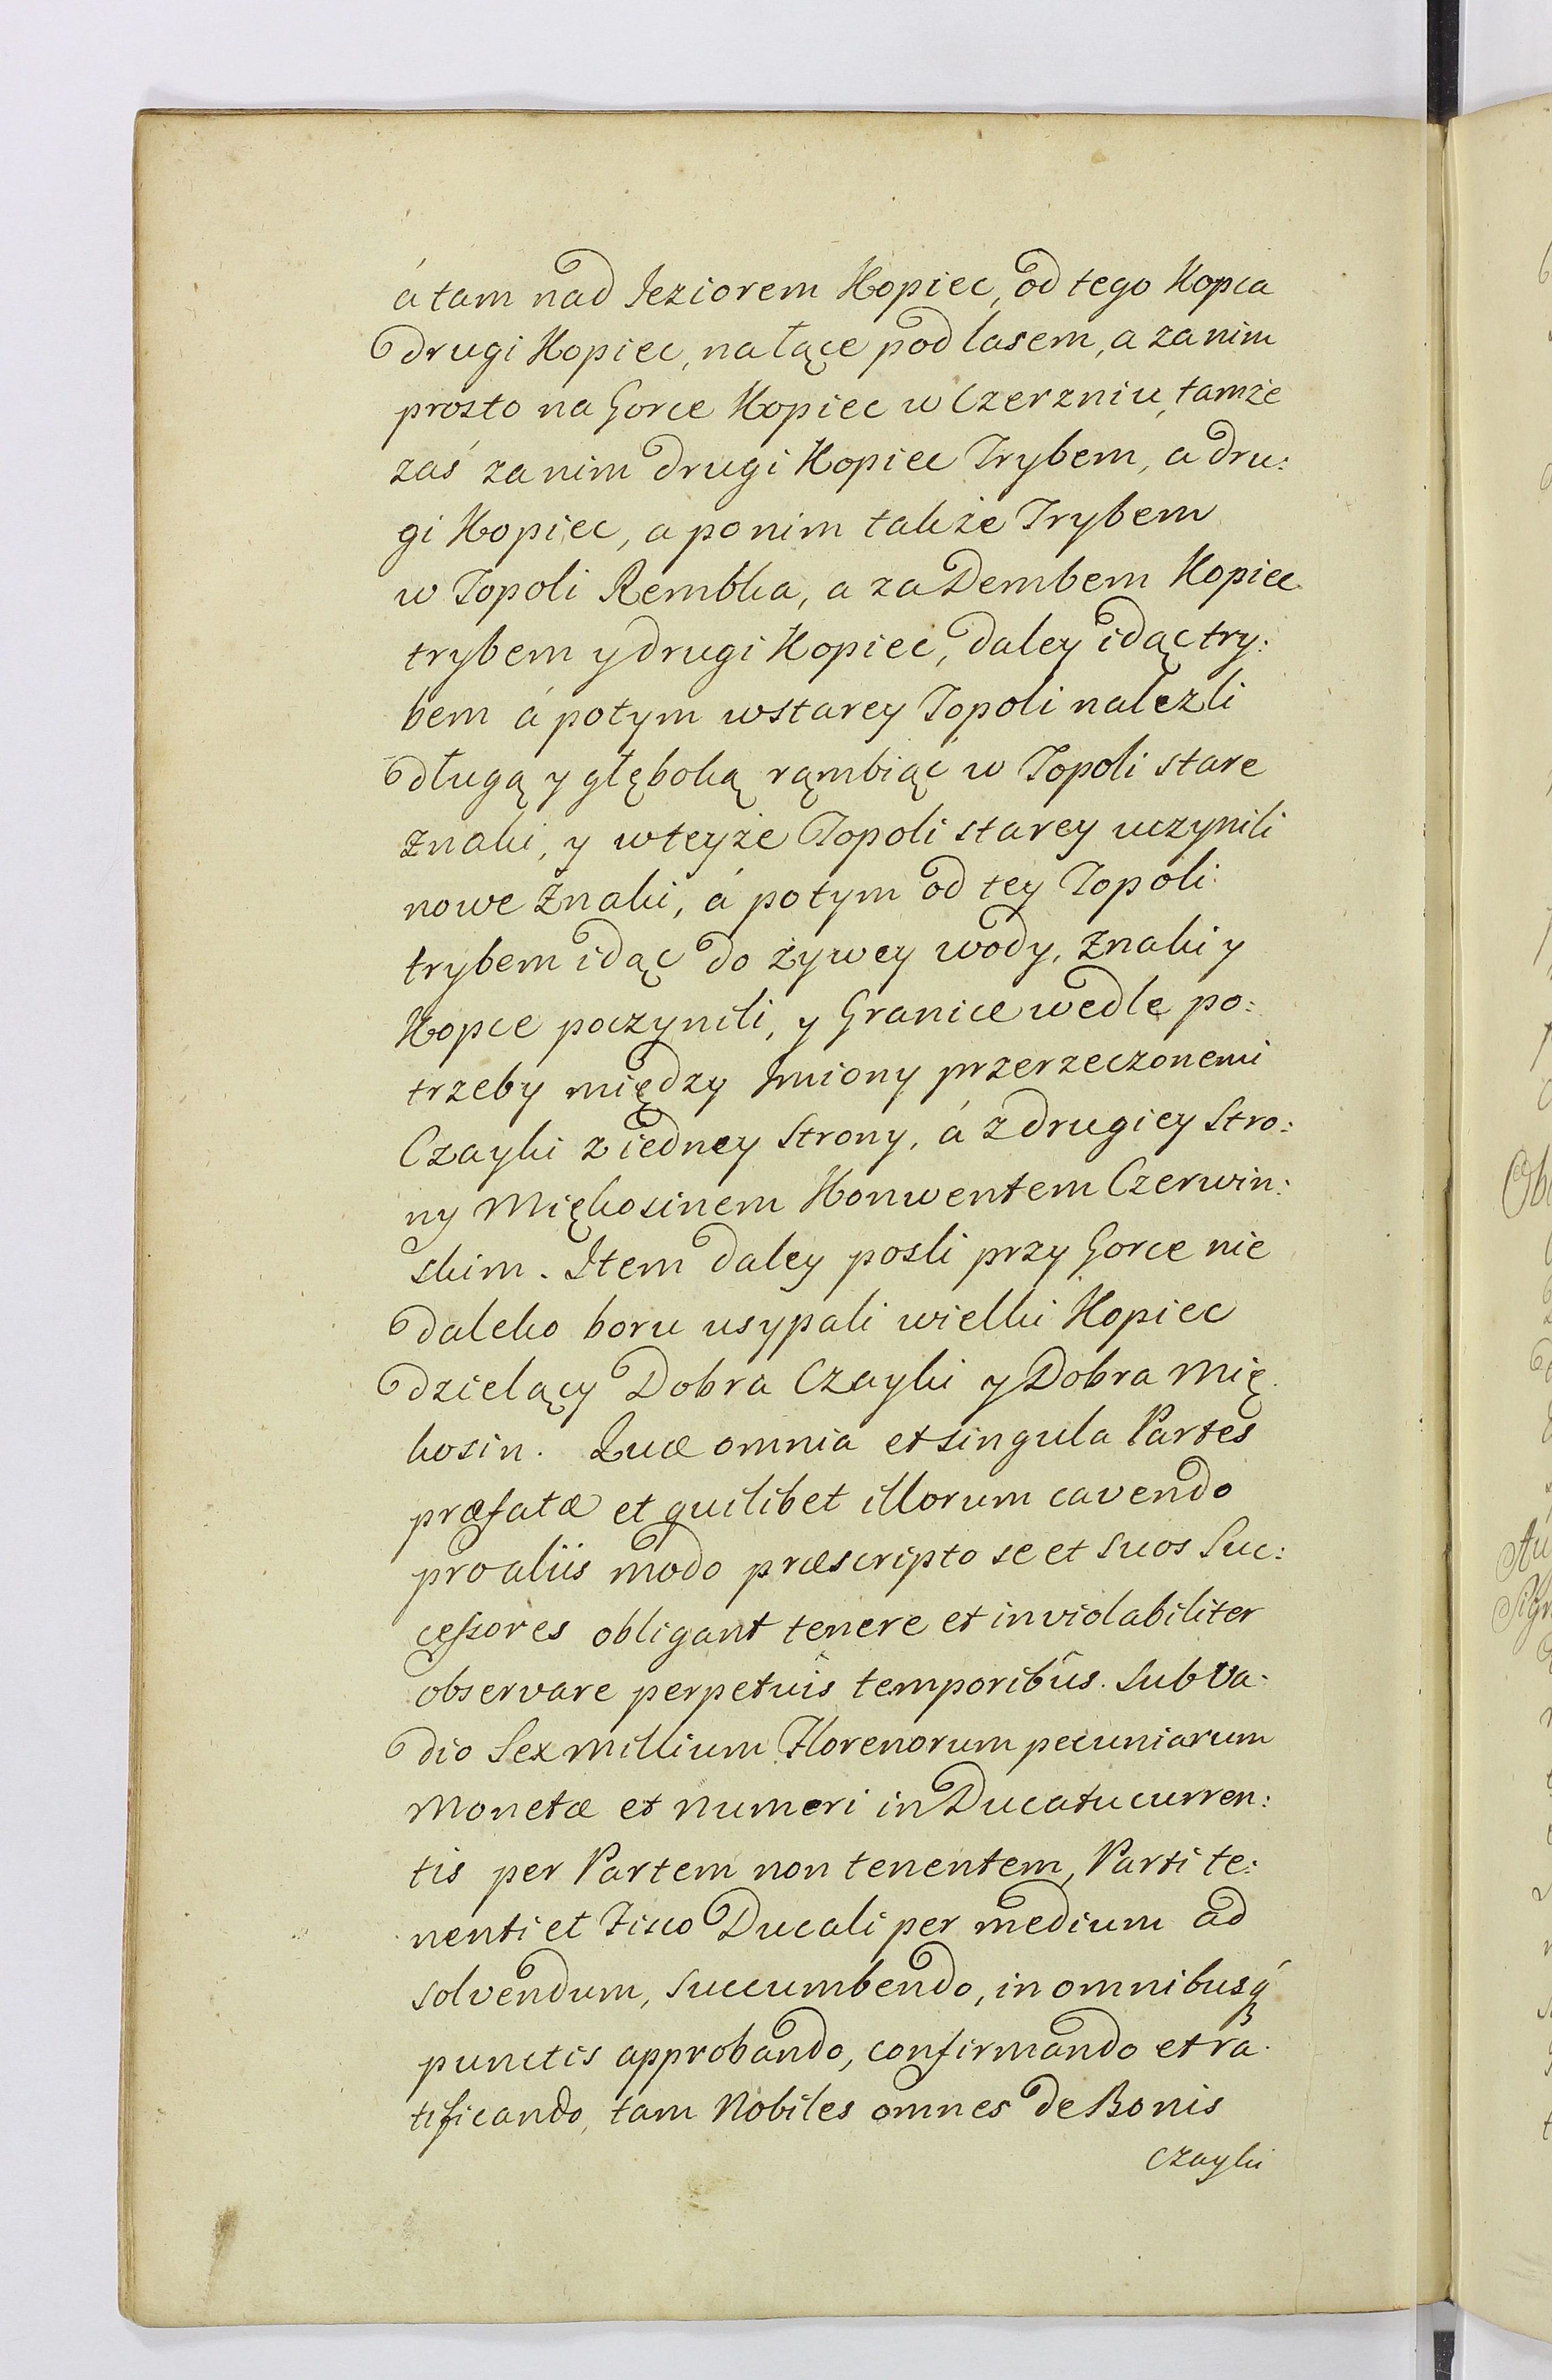 á tam nad Jeziorem Kopiec, od tego Kopca
drugi Kopiec, na łące pod lasem, a za nim
prosto na Gorce Kopiec w Czerzniu, tamże
zaś za nim drugi Kopiec Trybem, a dru:
gi Kopiec, a po nim także Trybem
w Topoli Rembka, a za Dembem Kopiec
trybem y drugi Kopiec, daley idąc try:
bem á potym w starey Topoli nalezli
długą y głęboką rąmbiąc w Topoli stare
znaki, y w teyże Topoli starey uczynili
nowe Znaki, á potym od tey Topoli
trybem idąc do żywey wody, Znaki y
Kopce poczynili, y Granice wedle po:
trzeby między Imiony przerzeczonemi
Czayki z iedney Strony, á z drugiey Stro:
ny Miękosinem Konwentem Czerwin:
skim. Item daley posli przy Gorce nie
daleko boru usypali wielki Kopiec
dzielący Dobra Czayki y Dobra Mię.
kosin. Quæ omnia et singula Partes
præfatæ et quilibet illorum cavendo
pro aliis modo præscripto se et suos Suc:
cessores obligant tenere et inviolabiliter
observare perpetuis temporibûs. Sub va:
dio Sex millium Florenorum pecuniarum
Monetæ et numeri in Ducatu curren:
tis per Partem non tenentem, Parti te:
nenti et Fisco Ducali per medium ad
solvendum, succumbendo, in omnibusq́
punctis approbando, confirmando et ra.
tificando, tam Nobiles omnes de Bonis
Czayki